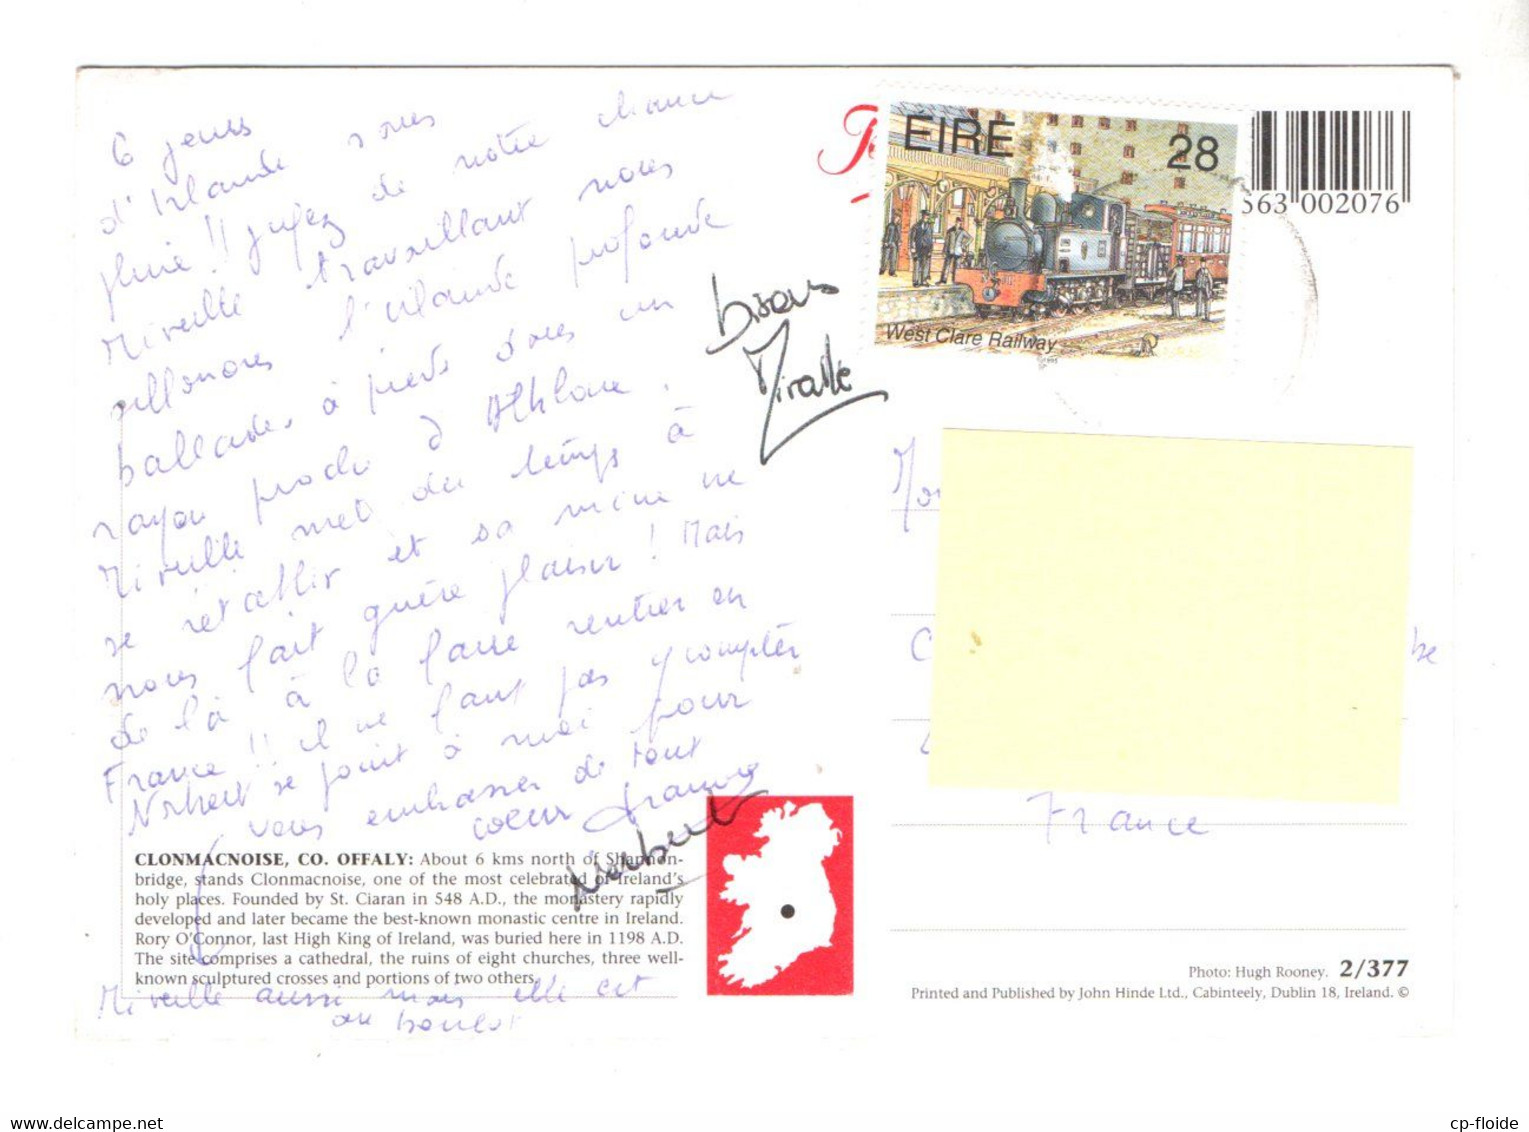 6 jours
d'Irlande sans
pluie !! jugez de notre chance
Mireille travaillant nous
sillonons l'Irlande profonde
ballades à pieds dans un
rayon proche d'Athlone.
Mireille met du temps à
se rétablir et sa mine ne
nous fait guère plaisir ! Mais
de là à la faire rentrer en
France !! il ne faut pas y compter
Norbert se joint à moi pour
vous embrasser de tout
coeur
Norbert
Mireille aussi mais elle est
au boulot
bisous
Mireille
EIRE 28
West Clare Railway
563 002076
France
CLONMACNOISE, CO. OFFALY: About 6 kms north of Shannon-
bridge, stands Clonmacnoise, one of the most celebrated of Ireland's
holy places. Founded by St. Ciaran in 548 A.D., the monastery rapidly
developed and later became the best-known monastic centre in Ireland.
Rory O'Connor, last High King of Ireland, was buried here in 1198 A.D.
The site comprises a cathedral, the ruins of eight churches, three well-
known sculptured crosses and portions of two others.
Photo: Hugh Rooney. 2/377
Printed and Published by John Hinde Ltd., Cabinteely, Dublin 18, Ireland. ©
www.delcampe.net
cp-floide